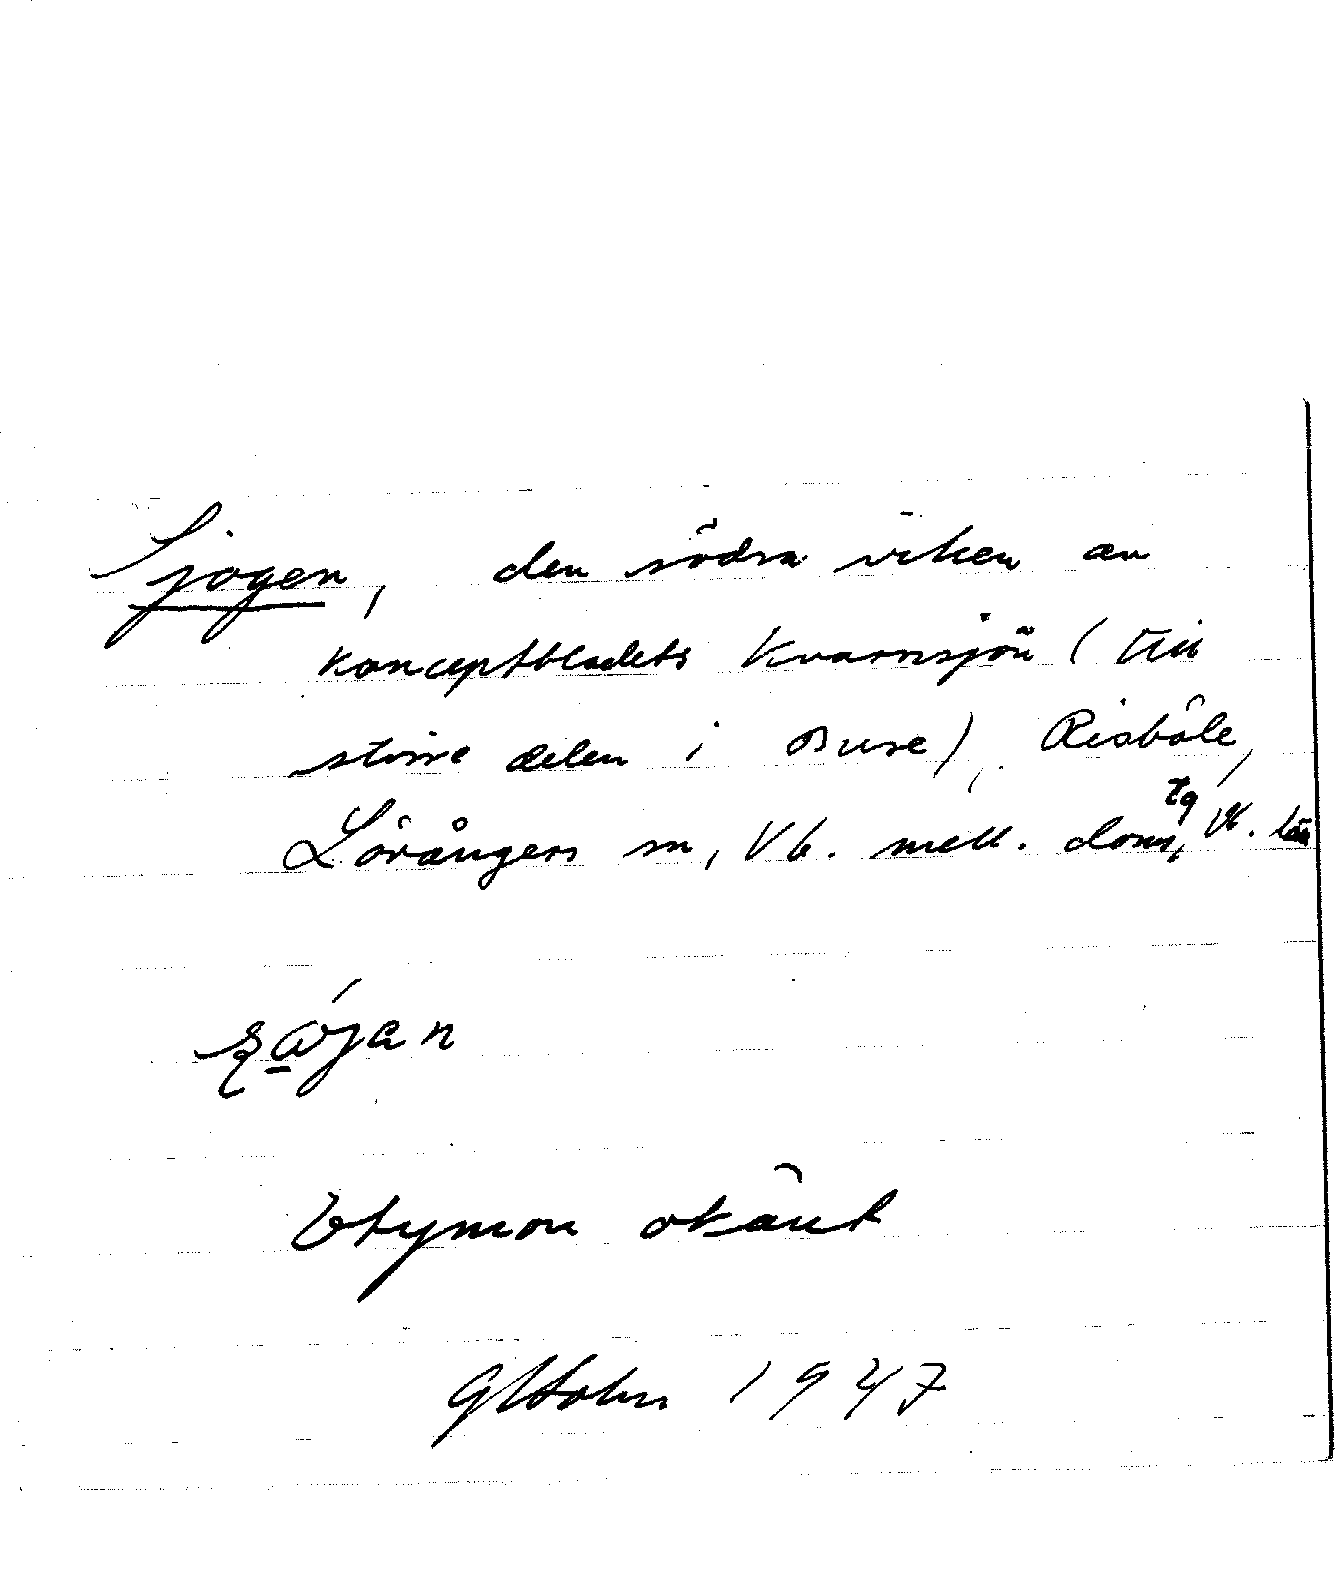 Sjogen, den södra viken av
konceptbladets Kvarnsjön (till
större delen i Bure), Risböle,
Lövångers sn, Vb. mell. doms tg, Vb. län
Etymon okänt
1947